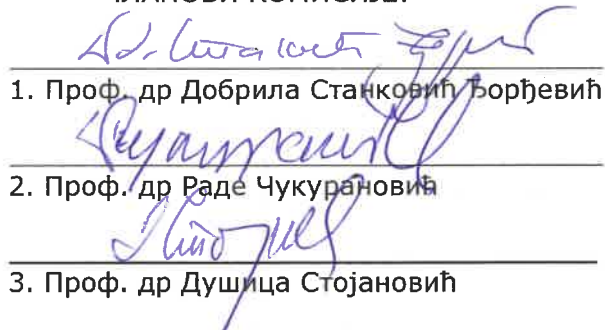 ЧЛАНОВИ КОМИСИЈЕ:
1. Проф. др Добрила Станковић Ђорђевић
2. Проф. др Раде Чукурановић
3. Проф. др Душица Стојановић